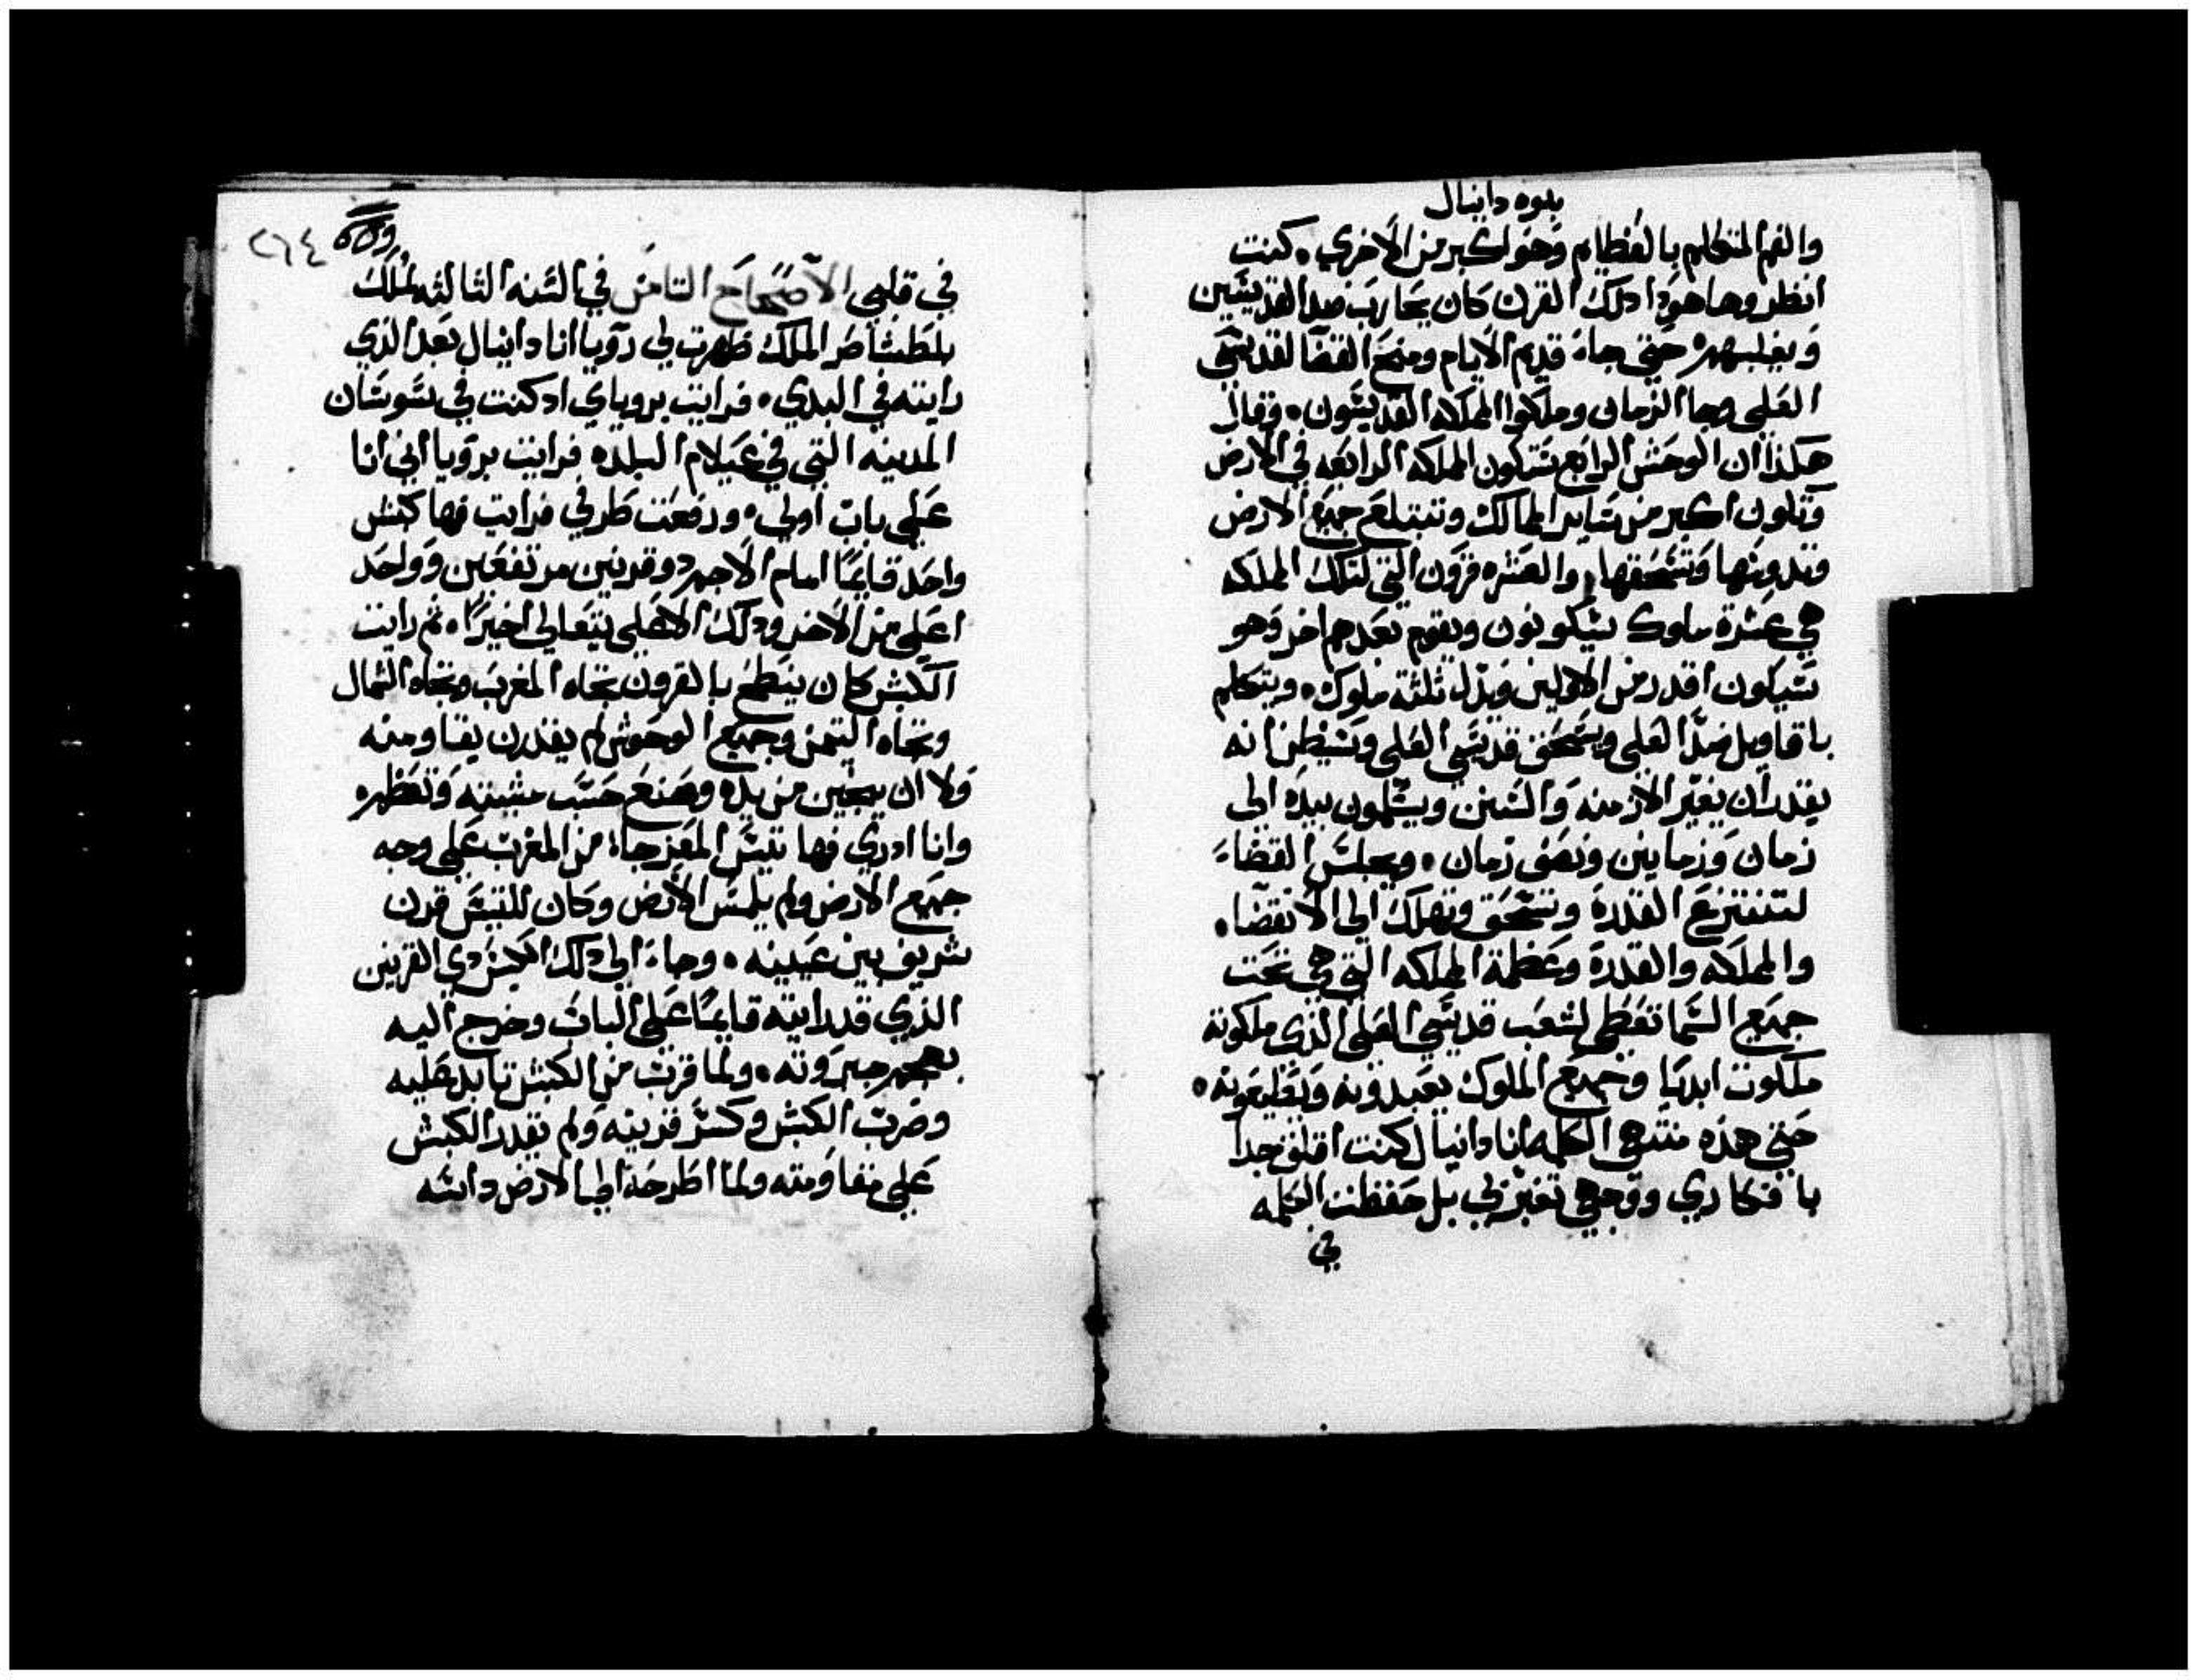 نبوه دانيال
والفم المتكلم بالعظايم وهو اكبر من الاخرى. كنت
انظر وها هودا دلك القرن كان يحارب ضد القديسين
ويغلبهم حتى جاء قديم الايام ومنح القضا لقديسي
العلي وجا الزمان وملكوا المملكه القديسون. وقال
هكذا ان الوحش الرابع ستكون المملكه الرابعه في الارض
وتكون اكبر من ساير الممالك وتبتلع جميع الارض
وتدوسها وتسحقها. والعشره قرون التي لتلك المملكه
هي عشرة ملوك سيكونون ويقوم بعدهم اخر وهو
سيكون اقدر من الاولين ويذل ثلثة ملوك. ويتكلم
باقاويل ضد العلي ويسحق قديسي العلي وسيظن انه
يقدر ان يغير الازمنه والسنن ويسلمون بيده الى
زمان وزمانين ونصف زمان. ويجلس القضاء
لتنتزع القدرة وتسحق وتهلك الى الانقضاء.
والمملكه والقدرة وعظمة المملكه التي هي تحت
جميع السما تعطى لشعب قديسي العلي الذي ملكوته
ملكوت ابديا وجميع الملوك يعبدونه ويطيعونه.
حتى هذه منتهى الكلمه انا دانيال كنت اقلق جدا
بافكاري ووجهي تغير في بل حفظت الكلمه
في
٢٦٤
في قلبي الاصحاح الثامن في السنه الثالثه لملك
بلطشاصر الملك ظهرت لي رويا انا دانيال بعد الذي
رايته في البدي. فرايت بروياي اد كنت في سوسان
المدينه التي في عيلام البلده فرايت برويا اني انا
على باب اولي. ورفعت طرفي فرايت فها كبش
واحد قايمًا امام الاجم دو قرنين مرتفعين وواحد
اعلى من الاخر ودلك الاعلى يتعالى اخيرًا. ثم رايت
الكبش كان ينطح بالقرون تجاه المغرب وتجاه الشمال
وتجاه التيمن وجميع الوحوش لم يقدرن يقاومنه
ولا ان ينجين من يده وصنع حسب مشيته وتعظم
وانا ادري فها تيس المعز جاء من المغرب على وجه
جميع الارض ولم يلمس الارض وكان للتيس قرن
شريف بين عينيه. وجاء الى دلك الكبش دي القرنين
الذي قد رايته قايمًا على الباب وخرج اليه
جبروته. ولما قرب من الكبش عليه
وضرب الكبش وكسر قرنيه ولم يقدر الكبش
على مقاومته ولما اطرحه الى الارض داسه